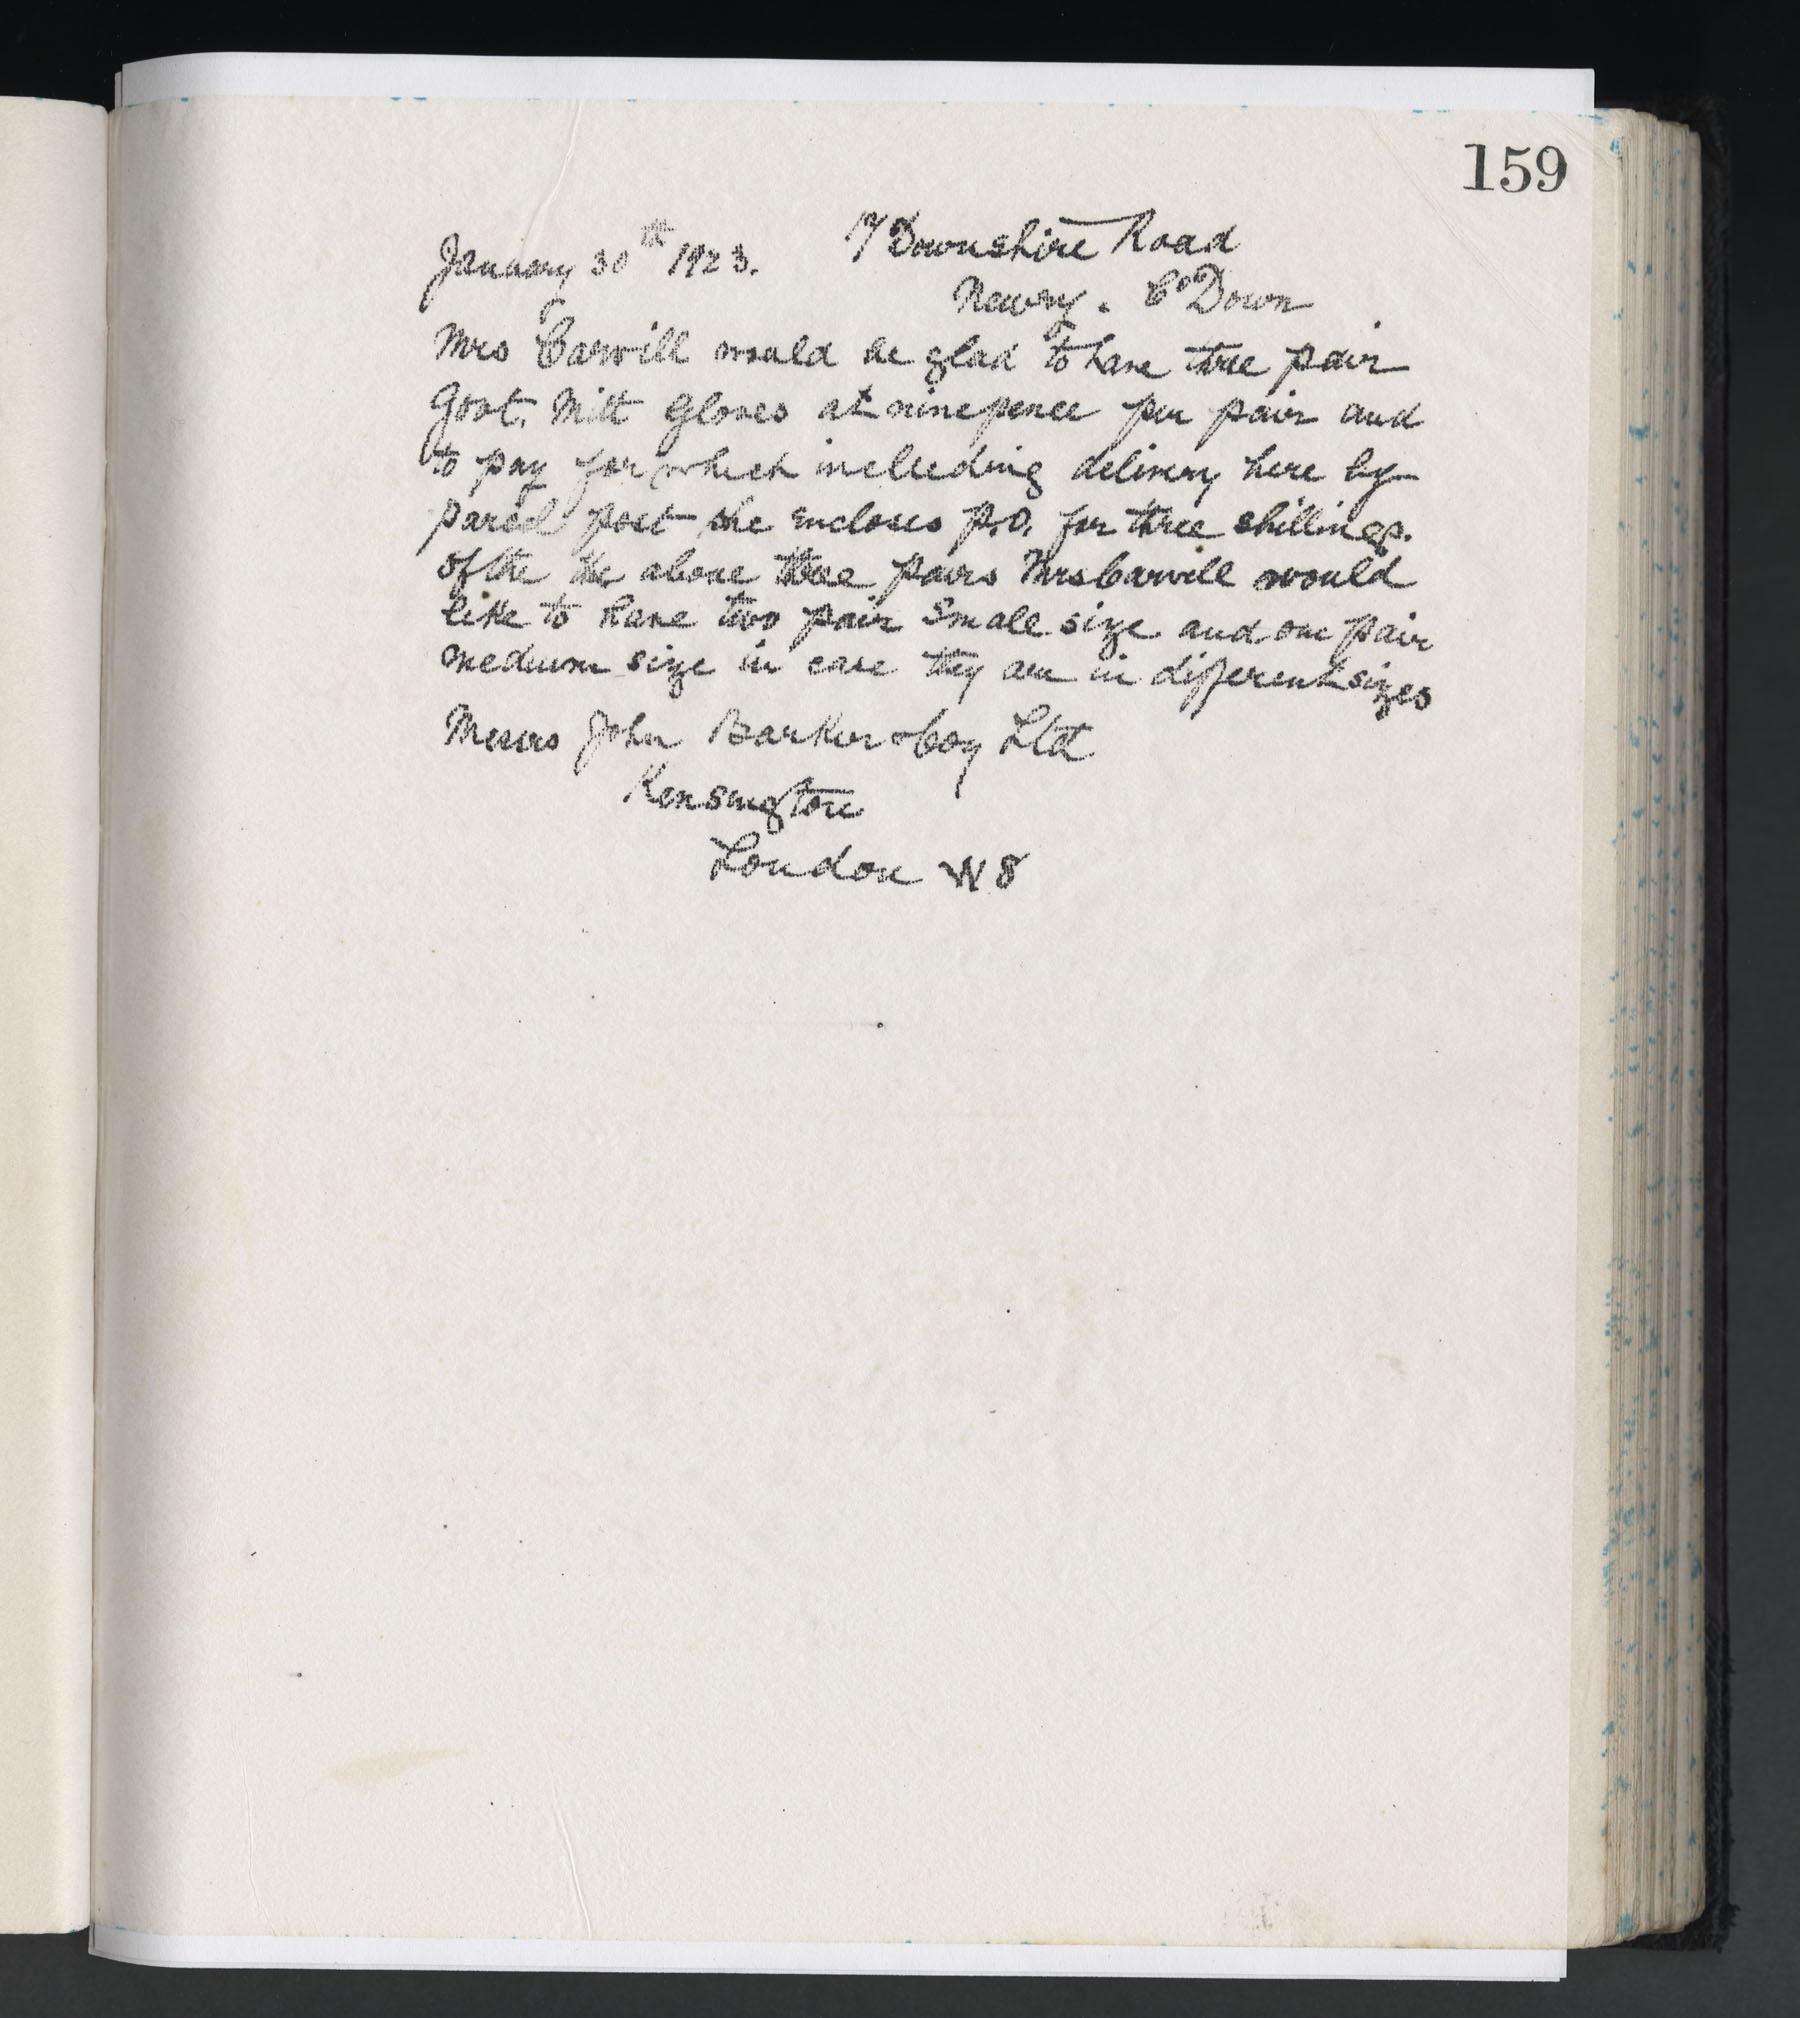 159
January 30th 1923. 17 Downshire Road
Newry. Co Down
Mrs Carvill would be glad to have three pair
Goat. Mitt Gloves at ninepence per pair and
to pay for which including delivery here by
parcel post she encloses P.O. for three shillings.
Of the the above three pairs Mrs Carvill would
like to have two pair small size and one pair
medium size in case they are in different sizes
Messrs John Barker & Coy Ltd
Kensington
London W8